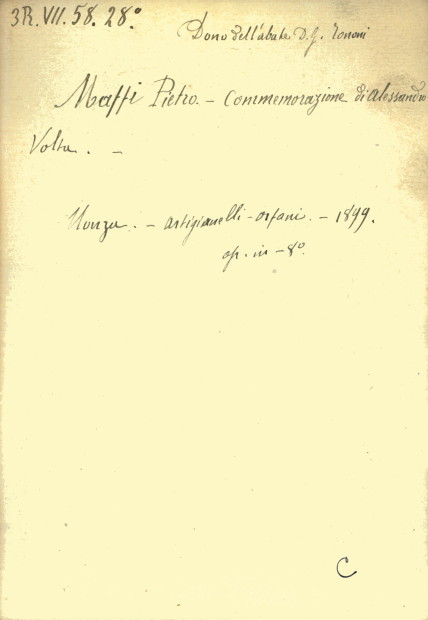 3R. VII. 58. 28°
Dono dell'abate D. G. Tononi
Maffi Pietro. – Commemorazione di Alessandro
Volta. –
Monza. – Artigianelli-orfani. – 1899.
op. in – 8°.
C